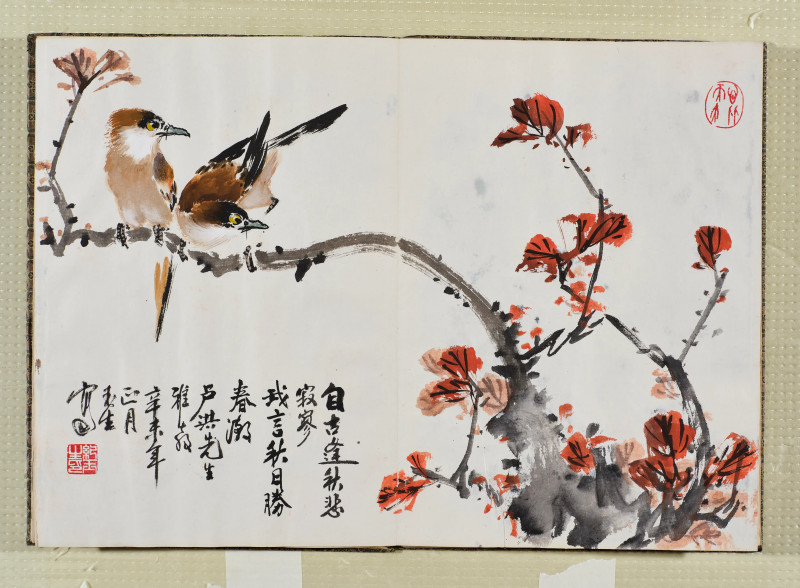 自古逢秋悲
寂寥
我言秋日勝
春潮
卢洪先生
雅教
辛未年
正月
玉生
写